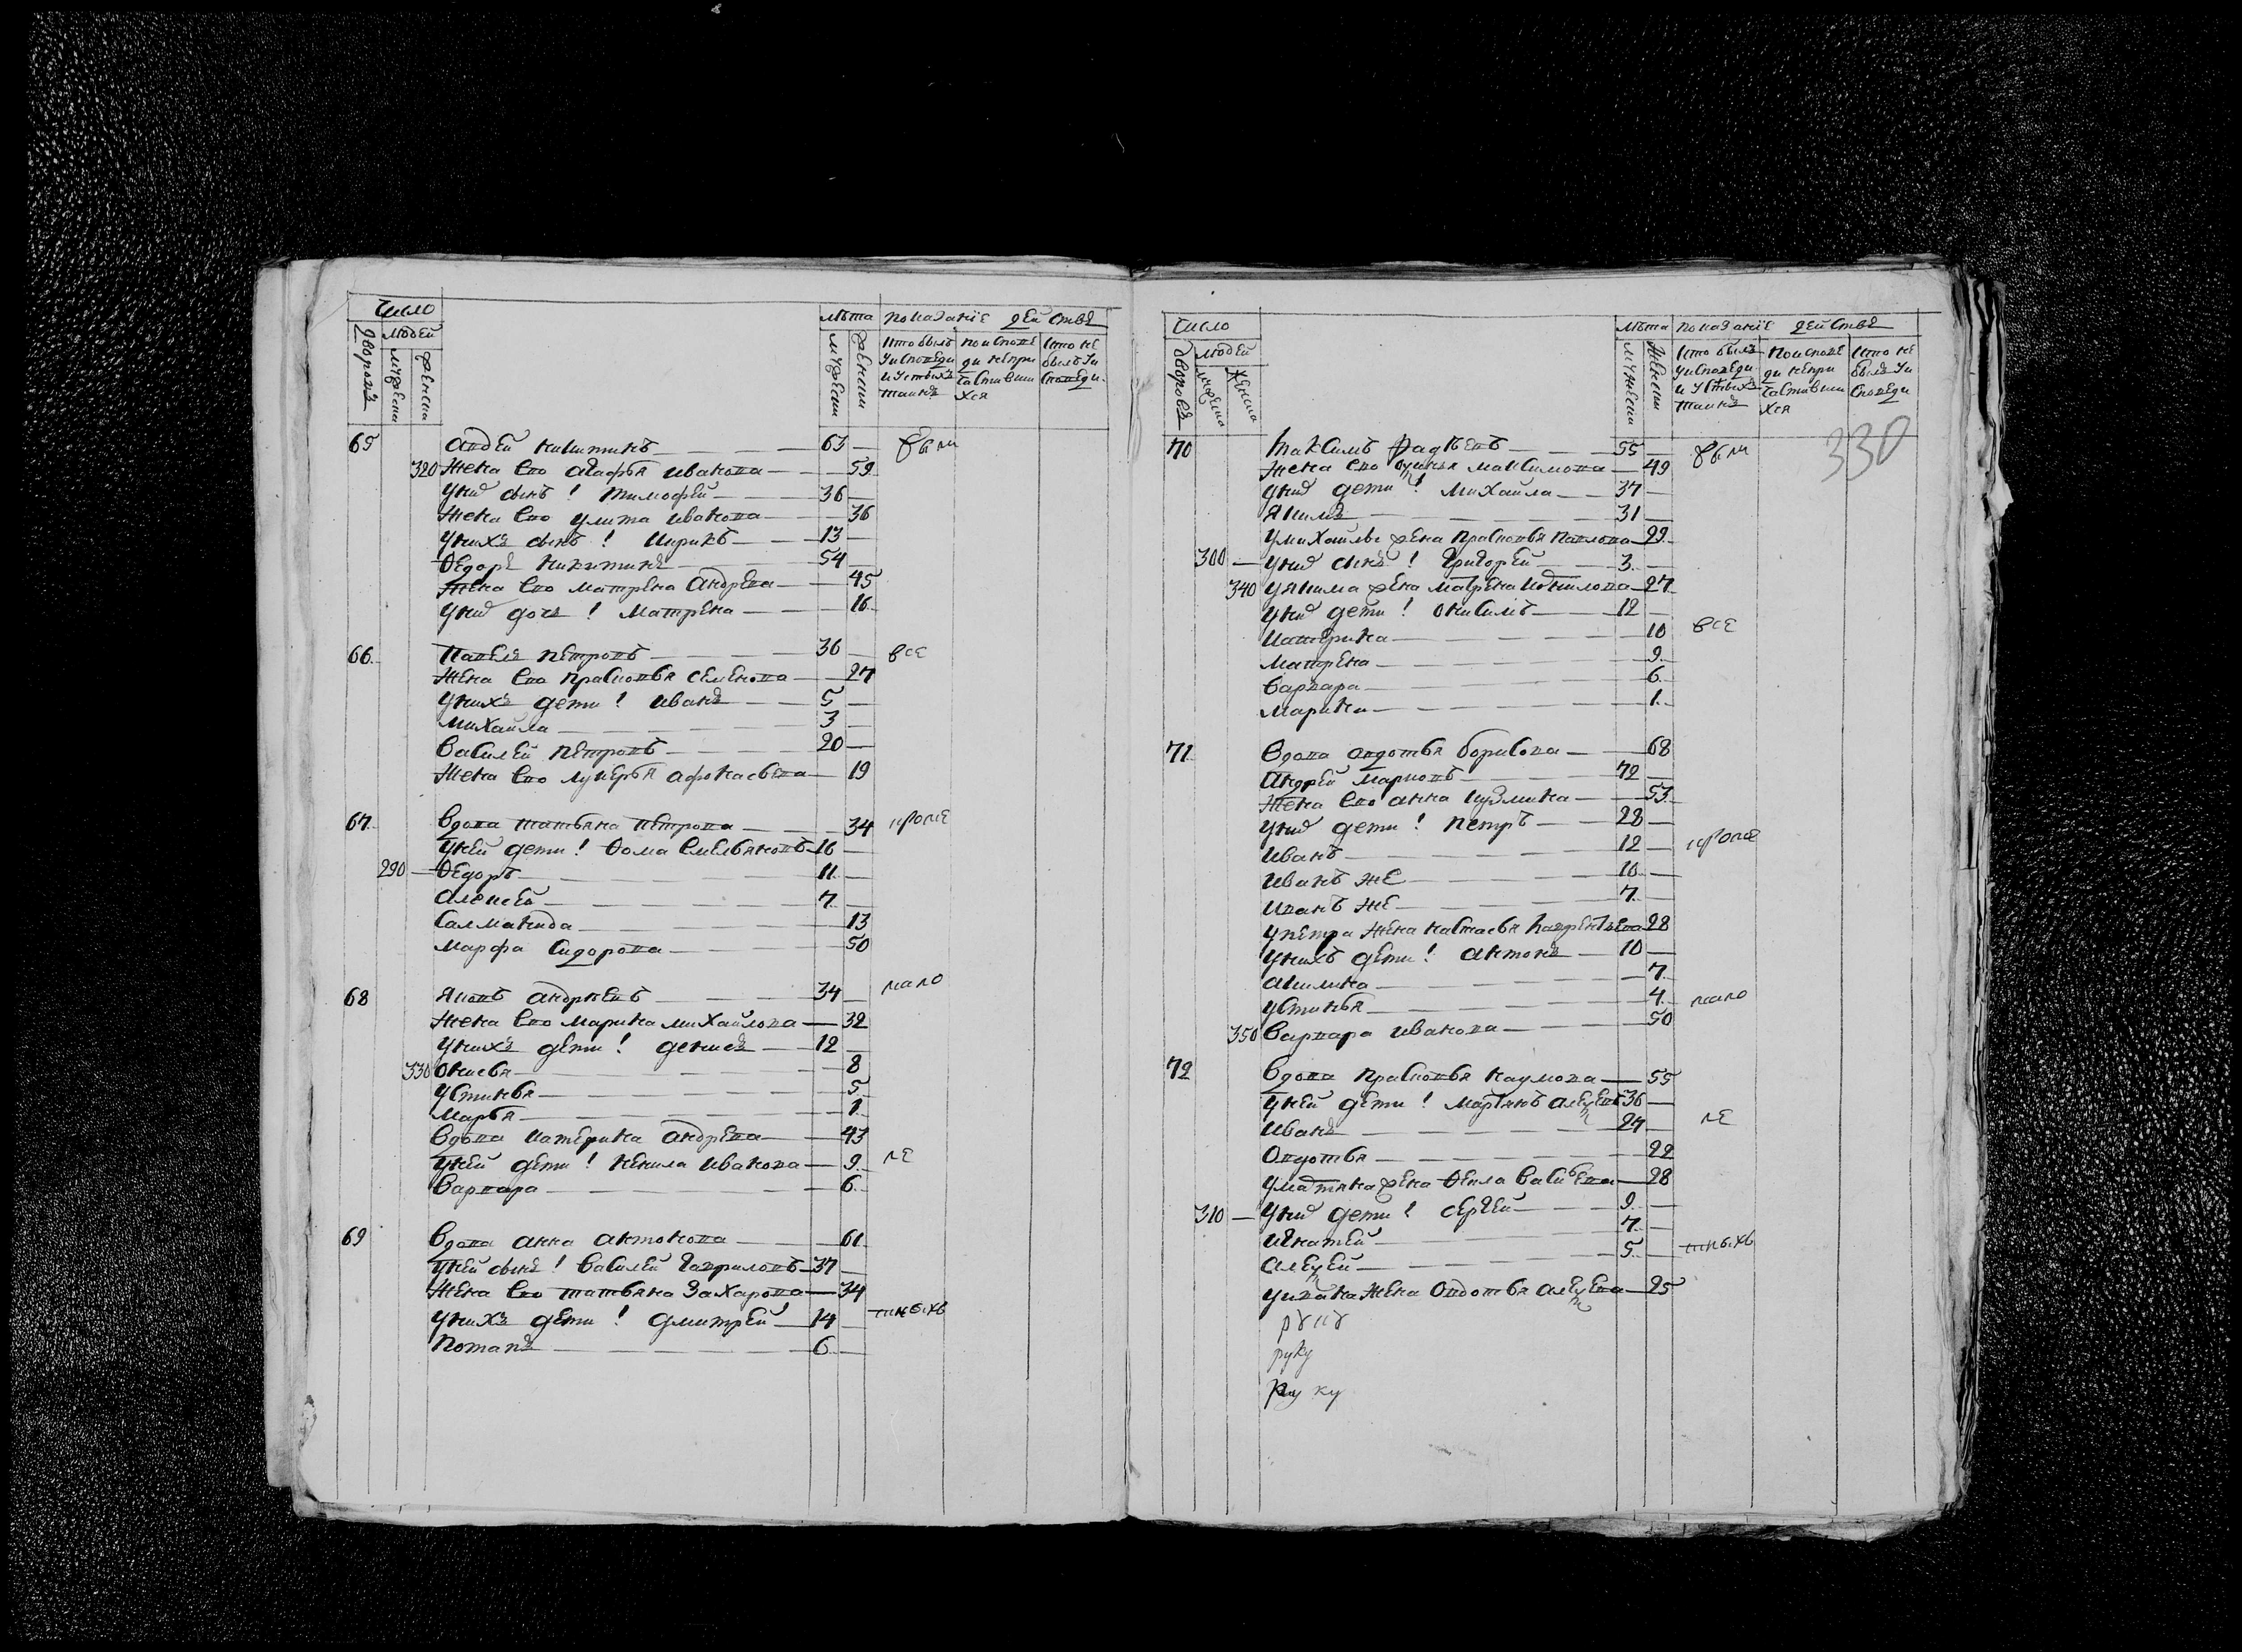 Число
людей
дворовъ
мужеска
женска
лѣта
показание действъ
мужески
женски
кто былъ у исповеди и у святыхъ таинъ
по исповеди не причастившихся
кто не былъ у исповеди
65 авдей никитинъ 63 были
320 жена ево агафья иванова 59
у нихъ сынъ! тимофей 36
жена ево улита иванова 36
у нихъ сынъ! кирикъ 13
Ѳедоръ никитинъ 54
жена ево матрена андрева 45
у них дочь! матрена 16
66 павелъ петровъ 36 все
жена ево прасковья семенова 27
у нихъ дети! иванъ 5
михайла 3
василей петровъ 20
жена ево лукерья афонасьева 19
67 вдова татьяна петрова 34 кроме
у ней дети! Ѳома емельяновъ 16
290 Ѳедоръ 11
алексей 7
саламанида 13
марфа сидорова 50
68 яковъ андрѣевъ 34 мало
жена ево марина михайлова 32
у нихъ дети! денисъ 12
330 оксья 8
устинья 5
марья 1
вдова катерина андрева 43
у ней дети! ненила иванова 9 ле
варвара 6
69 вдова анна антонова 61
у ней сынъ! василей гавриловъ 37
жена ево татьяна захарова 34
у нихъ дети! дмитрей 14 тныхъ
потапъ 6
Число
людей
дворовъ
мужеска
женска
лѣта
показание действъ
мужески
женски
кто былъ у исповеди и у святыхъ таинъ
по исповеди не причастившихся
кто не былъ у исповеди
330
70 максимъ фадѣевъ 55 были
жена ево максимова 49
у них дети! михайла 37
якимъ 31
у михайлы жена прасковья павлова 29
300 у них сынъ! григорей 3
340 у якима жена матрена 27
у них дети! онисимъ 12
катерина 10 все
матрена 9
варвара 6
марина 1
71 вдова авдотья борисова 68
андрей марковъ 72
жена ево анна кузмина 53
у них дети! петръ 28
иванъ 12 кроме
иванъ же 10
иванъ же 7
у петра жена настасья лаврентьева 28
у нихъ дети! антонъ 10
акилина 7
устинья 4 мало
350 варвара иванова 50
72 вдова прасковья наумова 55
у ней дети! мартинъ алексевъ 36
иванъ 24 ле
овдотья 22
у мартина жена Ѳекла васильева 28
310 у них дети! сергей 9
игнатей 7
алексей 5 тныхъ
у ивана жена овдотья алексева 25
руку
руку
руку